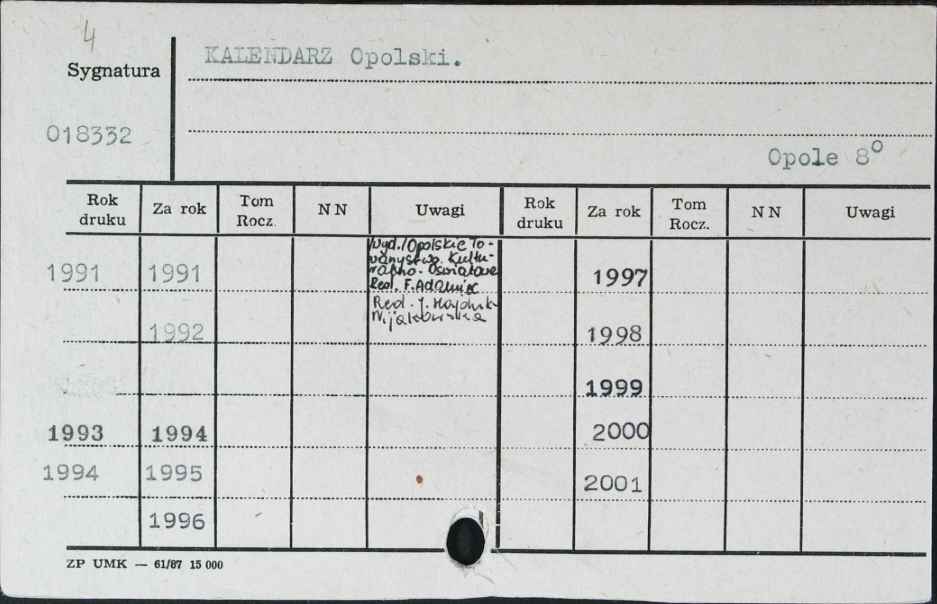 4
KALENDARZ Opolski.
Sygnatura
018332
Opole 8⁰
Rok druku Za rok Tom Rocz. NN Uwagi Rok druku Za rok Tom Rocz. NN Uwagi
Wyd./Opolskie To-
warzystwo Kultu-
ralno-Oświatowe
1991 1991 1997
Red. F. Adamiec
Red. J. Hajduk-
Nijakowska
1992 1998
1999
1993 1994 2000
1994 1995 2001
1996
ZP UMK — 61/87 15 000